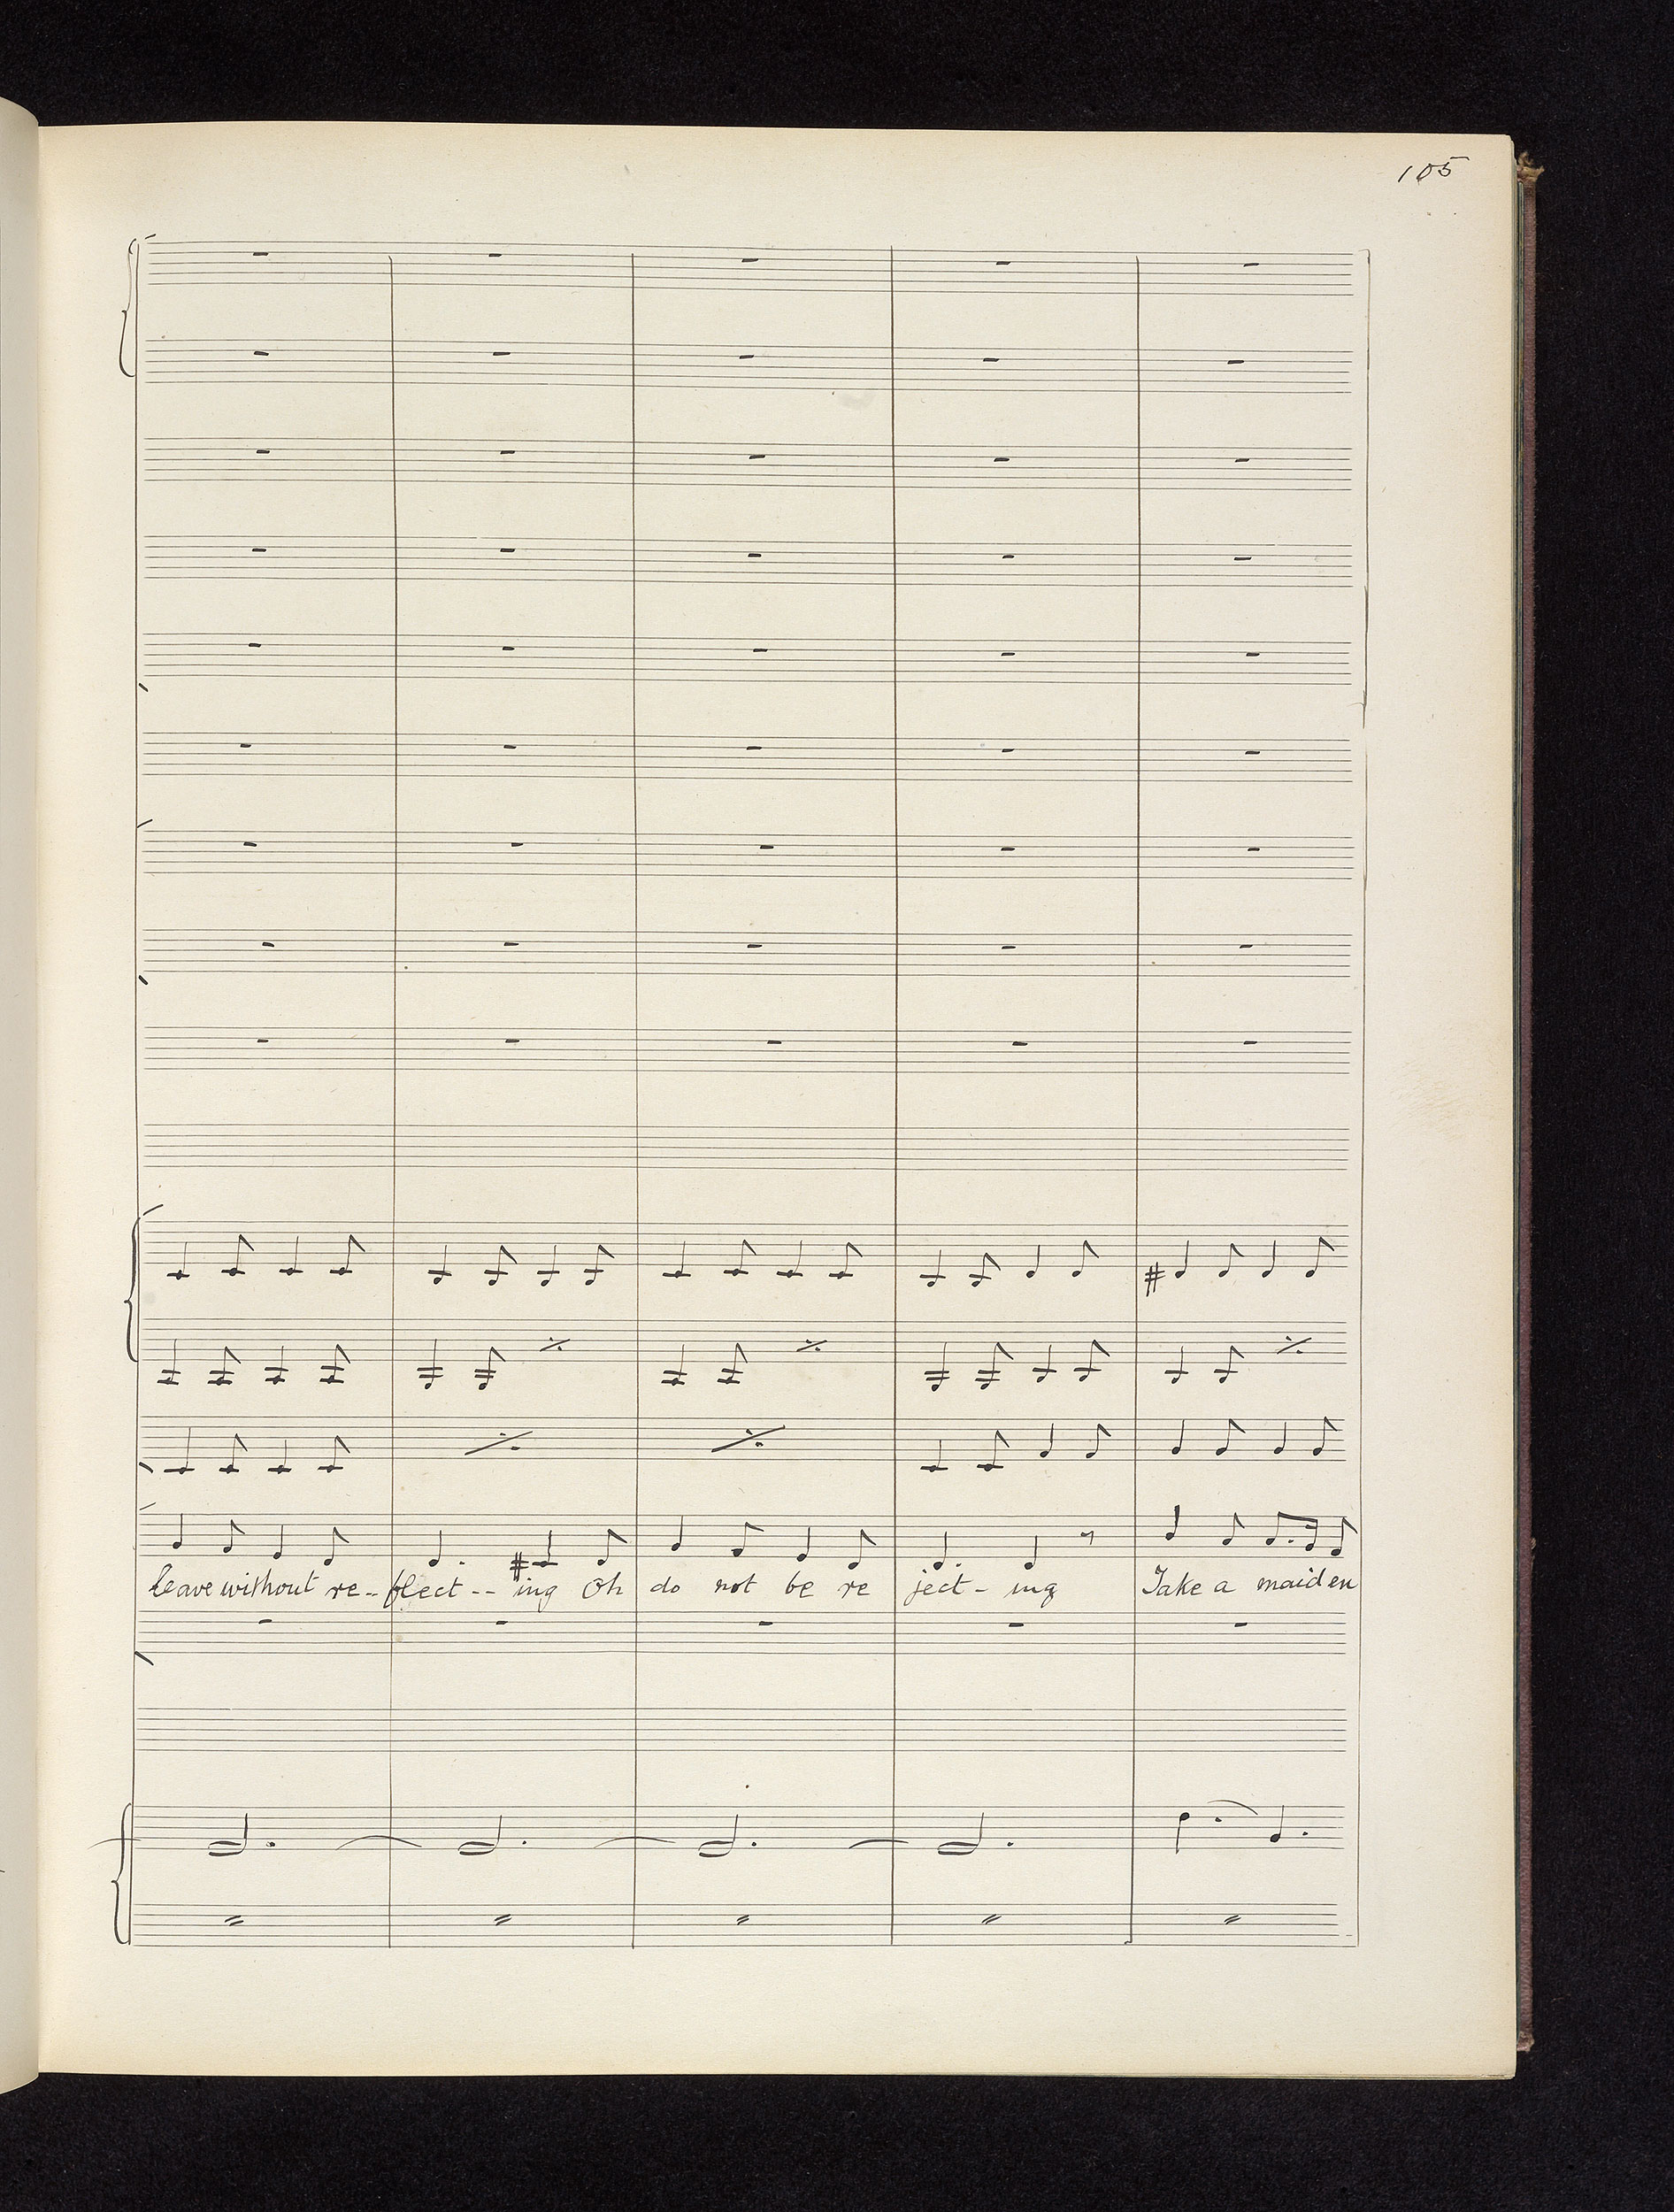 105
leave without re-- flect -- ing Oh do not be re ject - ing Take a maiden